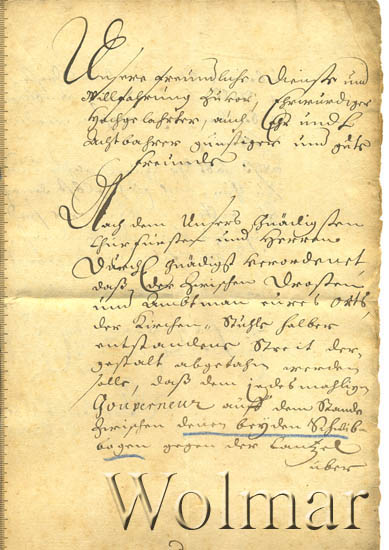 Unsere freundliche Dienste und
Willfahrung zuvor, Ehrwürdiger
Hochgelahrter, auch Ehr und
Achtbahrer günstiger und gute
Freunde.
Nach dem Unsers Gnädigsten
Churfürsten und Herren
Durchl. Gnädigst verordenet
daß der zwischen Drosten
und Ambtman eures Orts,
der Kirchen-Stühle halber
entstandene Streit der
gestalt abgethan werden
solle, daß dem jedesmahligen
Gouverneur auff dem Stande
zwischen denen beyden Schwib-
bogen gegen der Cantzel
über
Wolmar